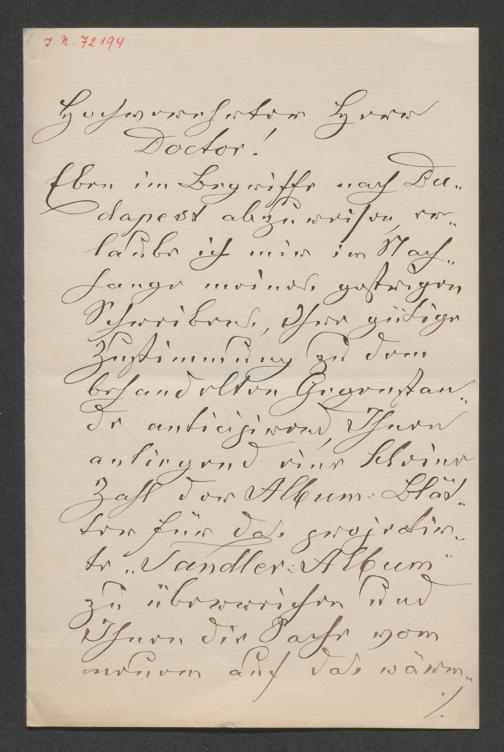 J. N. 72194
Hochverehrter Herr
Doctor!
Eben im Begriffe nach Bu-
dapest abzureisen, er-
laube ich mir im Nach-
hange meines gestrigen
Schreibens, Ihre gütige
Zustimmung zu dem
behandelten Gegenstan-
de anticipirend, Ihnen
anliegend eine kleine
Zahl der Album-Blät-
ter für das projectir-
te „Tandler-Album"
zu überreichen und
Ihnen die Sache vom
neuem auf das wärm-
./.